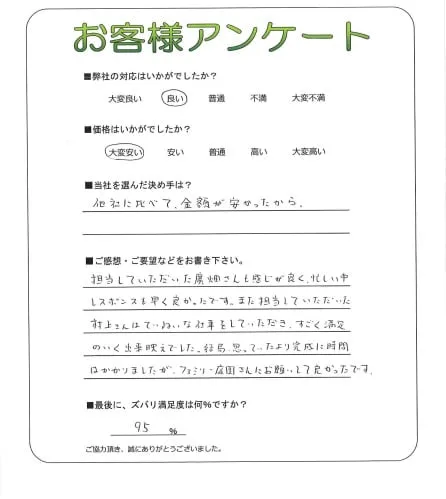 お客様アンケート
■弊社の対応はいかがでしたか？
大変良い 良い 普通 不満 大変不満
■価格はいかがでしたか？
大変安い 安い 普通 高い 大変高い
■当社を選んだ決め手は？
他社に比べて、金額が安かったから。
■ご感想・ご要望などをお書き下さい。
担当していただいた廣畑さんも感じが良く、忙しい中
レスポンスも早く良かったです。また担当していただいた
村上さんはていねいな仕事をしていただき、すごく満足
のいく出来映えでした。結局、思っていたより完成に時間
はかかりましたが、ファミリー庭園さんにお願いして良かったです。
■最後に、ズバリ満足度は何％ですか？
95 ％
ご協力頂き、誠にありがとうございました。